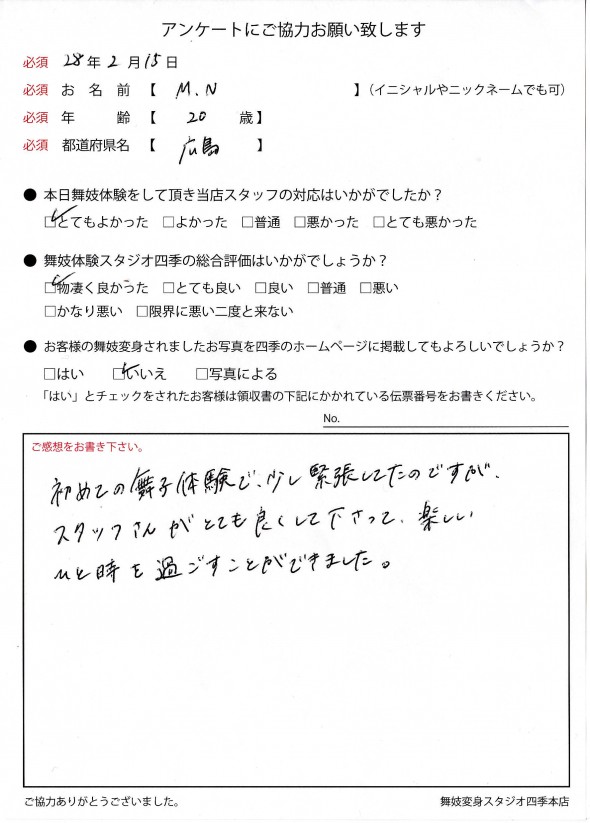 アンケートにご協力お願い致します
必須 28年 2月 15日
必須 お名前【 M.N 】（イニシャルやニックネームでも可）
必須 年齢【 20 歳】
必須 都道府県名【 広島 】
● 本日舞妓体験をして頂き当店スタッフの対応はいかがでしたか？
☑とてもよかった □よかった □普通 □悪かった □とても悪かった
● 舞妓体験スタジオ四季の総合評価はいかがでしょうか？
☑物凄く良かった □とても良い □良い □普通 □悪い
□かなり悪い □限界に悪い二度と来ない
● お客様の舞妓変身されましたお写真を四季のホームページに掲載してもよろしいでしょうか？
□はい ☑いいえ □写真による
「はい」とチェックをされたお客様は領収書の下記にかかれている伝票番号をお書きください。
No.
ご感想をお書き下さい。
初めての舞子体験で、少し緊張してたのですが、
スタッフさんがとても良くして下さって、楽しい
ひと時を過ごすことができました。
ご協力ありがとうございました。
舞妓変身スタジオ四季本店